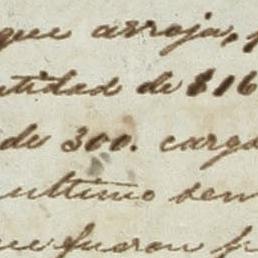 que arroja,
ntidad de $16
de 300. carga
ultimo
que fueron